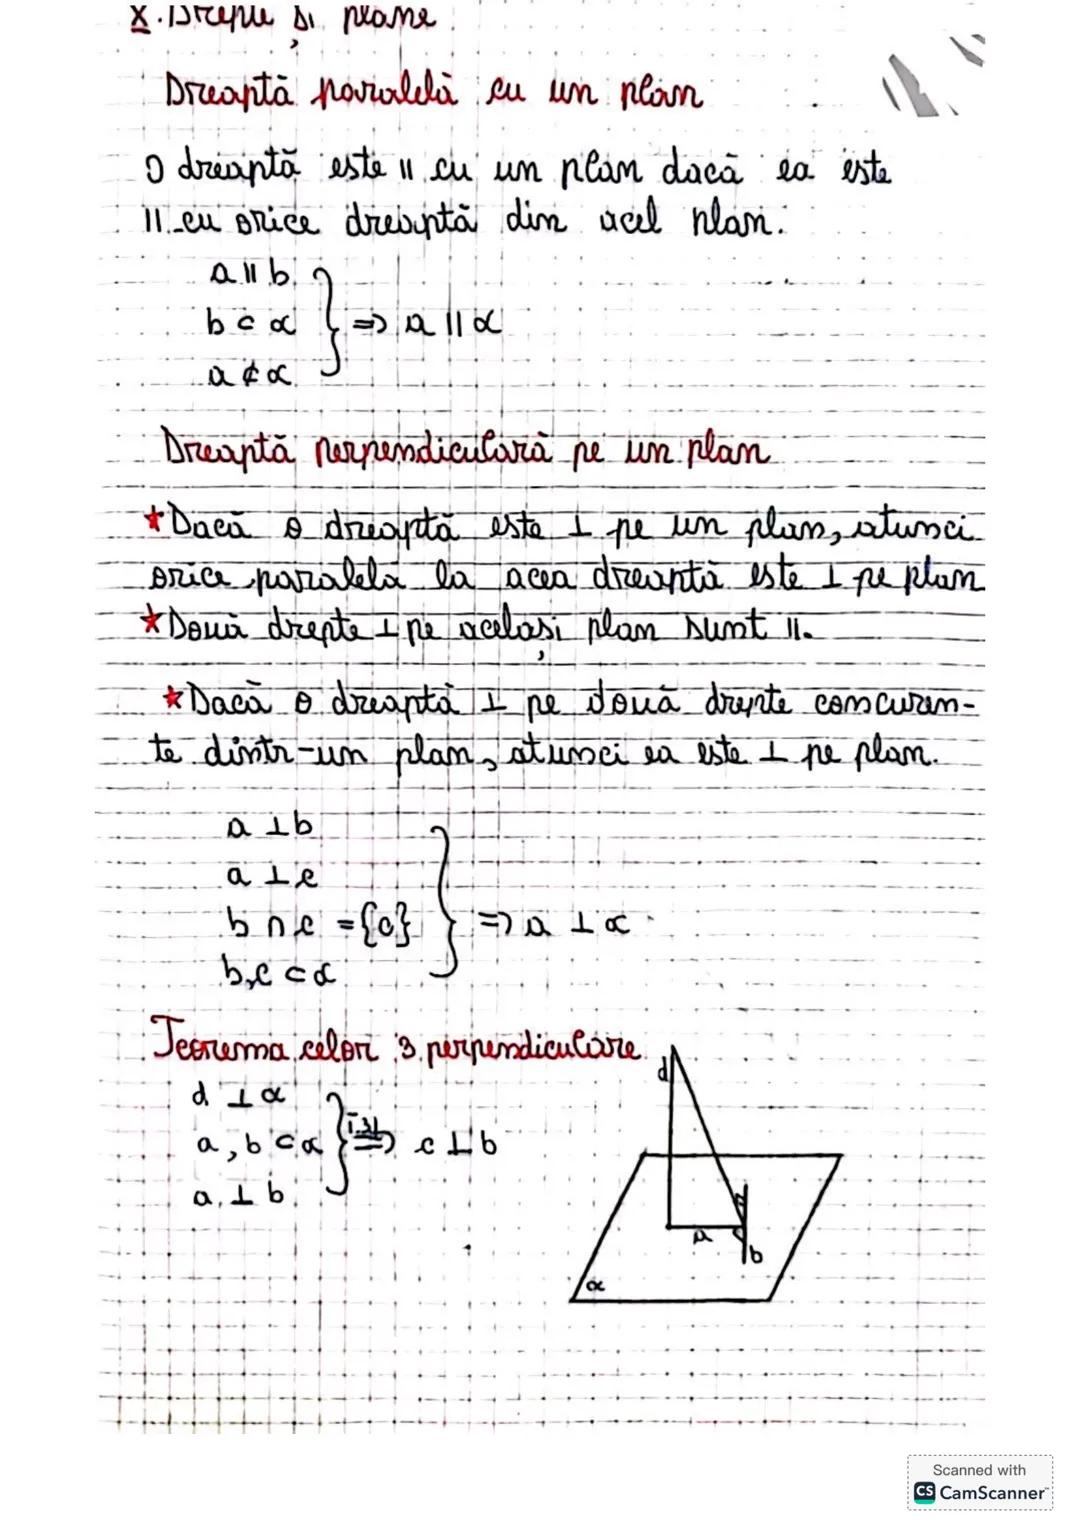 X. Drepte și plane
Dreaptă paralelă cu un plan
O dreaptă este || cu un plan dacă ea este
|| cu orice dreaptă din acel plan.
a || b
b ⊂ α } => a || α
a ⊄ α
Dreaptă perpendiculară pe un plan
★ Dacă o dreaptă este ⊥ pe un plan, atunci
orice paralelă la acea dreaptă este ⊥ pe plan
★ Două drepte ⊥ pe același plan sunt ||.
★ Dacă o dreaptă ⊥ pe două drepte concuren-
te dintr-un plan, atunci ea este ⊥ pe plan.
a ⊥ b
a ⊥ c
b ∩ c = {o} } => a ⊥ α
b, c ⊂ α
Teorema celor 3 perpendiculare
d ⊥ α
a, b ⊂ α } => c ⊥ b
a ⊥ b
d
a
b
α
Scanned with
CS CamScanner